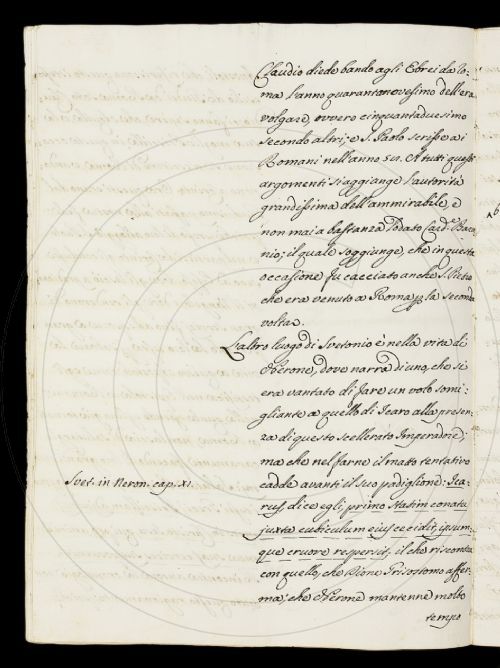 Claudio diede bando agli Ebrei da Ro:
ma l'anno quarantanovesimo dell'era
volgare, ovvero cinquantaduesimo
secondo altri; e S. Paolo scrisse ai
Romani nell'anno 58. A tutti questi
argomenti si aggiunge l'autorità
grandissima dell'ammirabile, e
non mai a bastanza lodato Card.^e Baro
nio; il quale soggiunge, che in questa
occasione fu cacciato anche S. Pietro
che era venuto a Roma p la seconda
volta.
L'altro luogo di Svetonio è nella vita di
Nerone, dove narra di uno, che si
era vantato di fare un volo somi:
gliante a quello di Icaro alla presen
za di questo scellerato Imperadore;
ma che nel farne il mato tentativo
cadde avanti il suo padiglione: Ica:
Svet. in Neron. cap. XI.
rus, dice egli, primo statim conatu
juxta cubiculum ejus cecidit, ipsum:
que cruore respersit, il che riscontra
con quello, che Dione Grisostomo affer:
ma; che Nerone mantenne molto
tempo